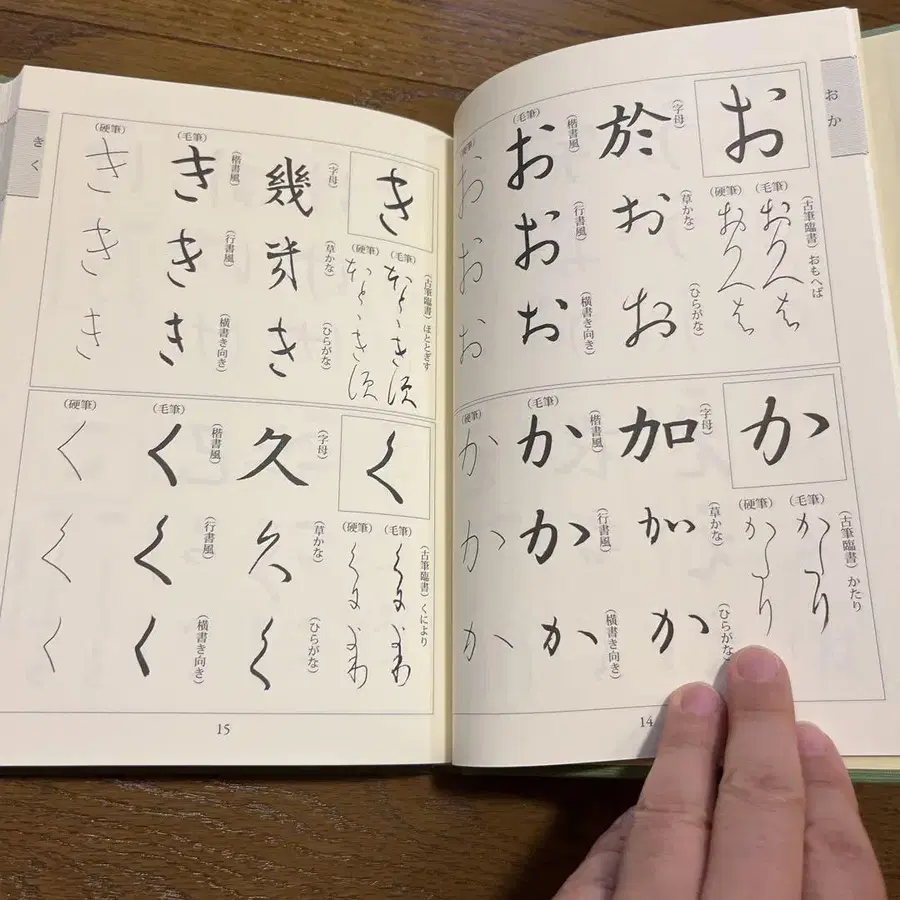 おか
お
（古筆臨書）おもへば
（毛筆）おもへは
（硬筆）おもへは
（字母）於
（草かな）お
（ひらがな）お
（毛筆）
（楷書風）お
（行書風）お
（横書き向き）お
（硬筆）
お
お
お
か
（古筆臨書）かたり
（毛筆）かたり
（硬筆）かたり
（字母）加
（草かな）か
（ひらがな）か
（毛筆）
（楷書風）か
（行書風）か
（横書き向き）か
（硬筆）
か
か
か
14
きく
き
（古筆臨書）ほととぎす
（毛筆）ほとゝき須
（硬筆）ほとゝき須
（字母）幾
（草かな）幾
（ひらがな）き
（毛筆）
（楷書風）き
（行書風）き
（横書き向き）き
（硬筆）
き
き
き
く
（古筆臨書）くにより
（毛筆）
（硬筆）
（字母）久
（草かな）久
（ひらがな）く
（毛筆）
（楷書風）く
（行書風）く
（横書き向き）く
（硬筆）
く
く
く
15